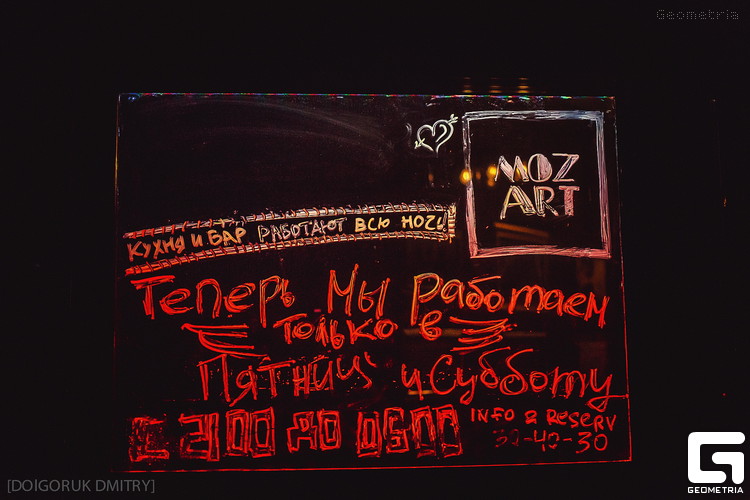 Geometria
MOZ
ART
КУХНЯ И БАР РАБОТАЮТ ВСЮ НОЧЬ!
Теперь Мы Работаем
только в
Пятницу и Субботу
С 21 00 ДО 06 00
INFO & RESERV
30-40-30
[DOIGORUK DMITRY]
GEOMETRIA